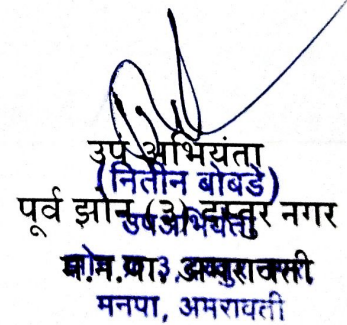 उप अभियंता
(नितीन बोबडे)
पूर्व झोन (३) दस्तुर नगर
उपअभियंता
म.न.पा. अमरावती
मनपा, अमरावती